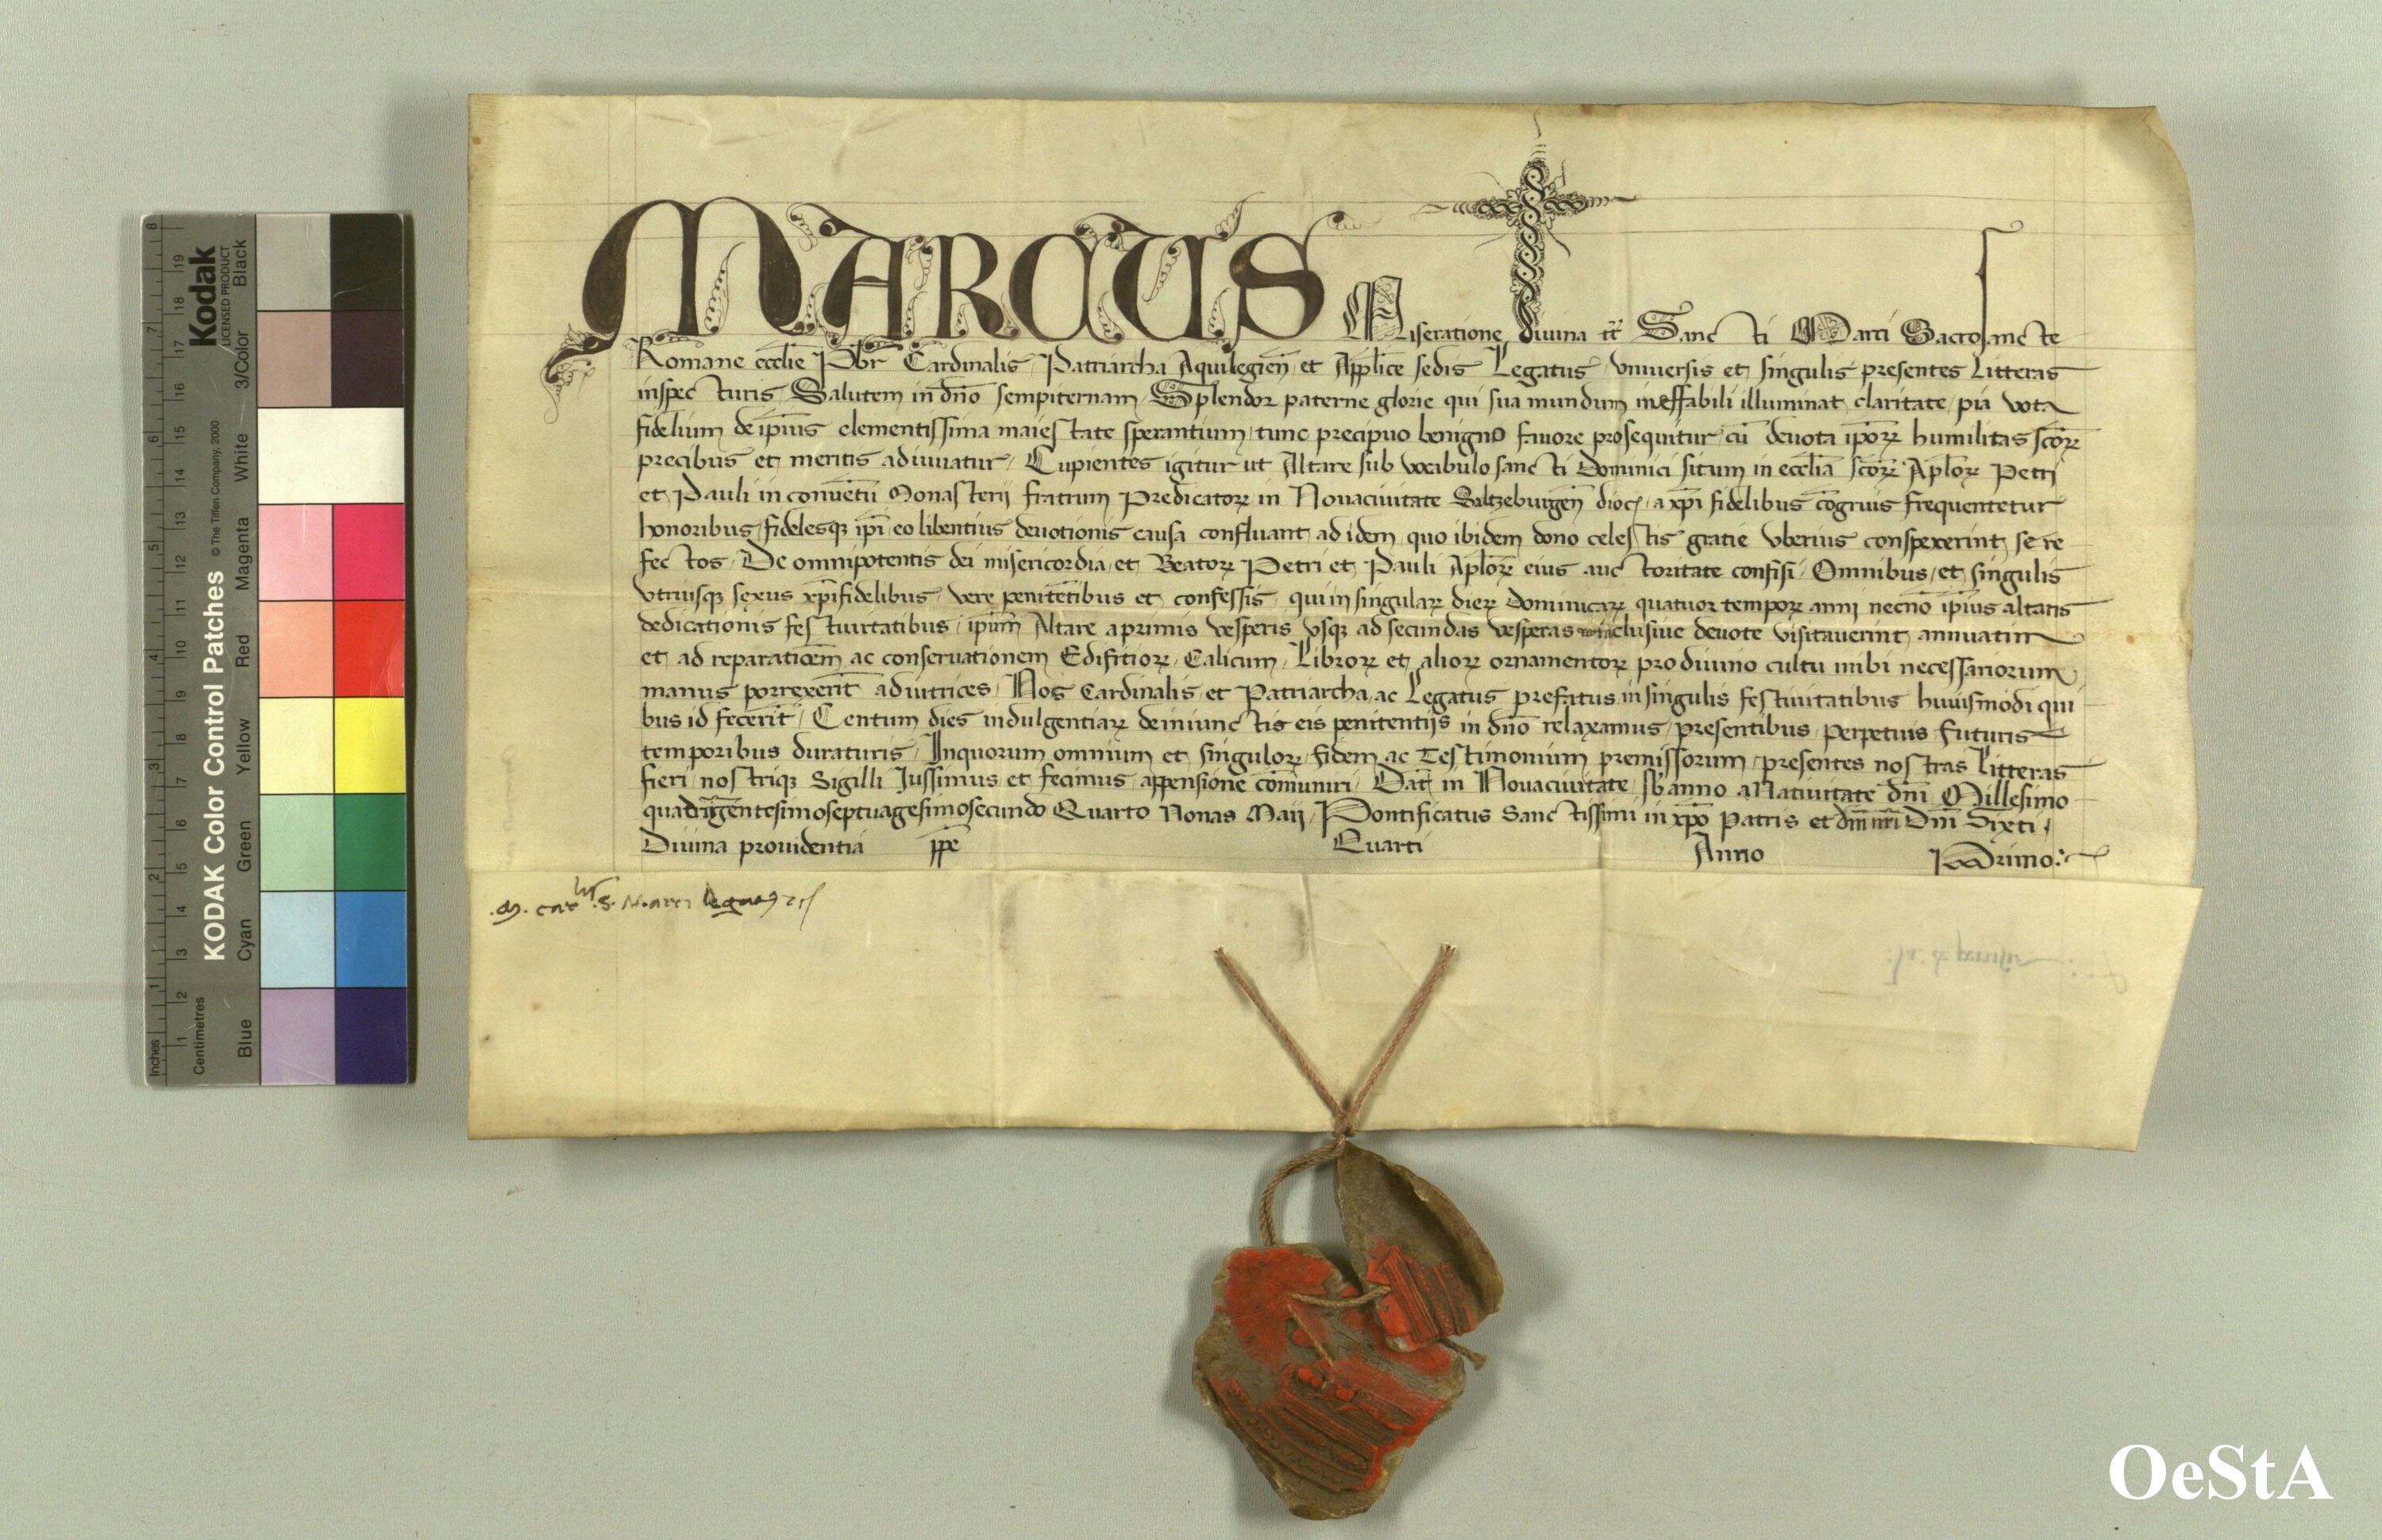 MARCUS Miseratione divina tt̄ Sancti Marci Sacrosancte
Romane eccłie Pbr̄ Cardinalis Patriarcha Aquilegieñ et Applīce sedis Legatus Vniversis et singulis presentes Litteras
inspecturis Salutem in dn̄o sempiternam Splendor paterne glorie qui sua mundum ineffabili illuminat claritate pia vota
fidelium de ip̄ius clementissima maiestate sperantium tunc precipuo benigno favore prosequitur cū devota ip̄oꝝ humilitas sc̄oꝝ
precibus et meritis adiuvatur Cupientes igitur ut Altare sub vocabulo sancti Dominici situm in eccłia sc̄oꝝ Apłoꝝ Petri
et Pauli in conventū Monasterij fratrum Predicatoꝝ in Novacivitate Saltzeburgeñ dioc̄ a xp̄i fidelibus cōgruis frequentetur
honoribus fidelesqꝫ ip̄i eo libentius devotionis causa confluant ad idem quo ibidem dono celestis gratie vberius conspexerint se re
fectos De omnipotentis dei misericordia et Beatoꝝ Petri et Pauli Apłoꝝ eius auctoritate confisi Omnibus et singulis
vtriusqꝫ sexus xp̄ifidelibus vere penitētibus et confessis qui in singulaꝝ dieꝝ Dominicaꝝ quatuor tempoꝝ anni necnō ip̄ius altaris
dedicationis festivitatibus ip̄um Altare a primis vesperis vsqꝫ ad secundas vesperas inclusive devote visitaverint annuatim
et ad reparationem ac conservationem Edifitioꝝ Calicum Libroꝝ et alioꝝ ornamentoꝝ pro divino cultu inibi necessariorum
manus porrexerīt adiutrices Nos Cardinalis et Patriarcha ac Legatus prefatus in singulis festivitatibus huiusmodi qui
bus id fecerīt Centum dies indulgentiaꝝ de iniunctis eis penitentijs in dn̄o relaxamus presentibus perpetuis futuris
temporibus duraturis In quorum omnium et singuloꝝ fidem ac Testimonium premissorum presentes nostras Litteras
fieri nostriqꝫ Sigilli Jussimus et fecimus appensione cōmuniri Dat̄ in Novacivitate sb anno a Nativitate dn̄i Millesimo
quadringentesimoseptuagesimosecundo Quarto Nonas Maij Pontificatus Sanctissimi in xp̄o Patris et dn̄i nr̄i Dn̄i Sixti
Divina providentia pp̄e Quarti Anno Primo
.M. car lis S. Marci legatus
Kodak
LICENSED PRODUCT
KODAK Color Control Patches
© The Tiffen Company, 2000
Black
3/Color
White
Magenta
Red
Yellow
Green
Cyan
Blue
Inches 1 2 3 4 5 6 7 8
Centimetres 1 2 3 4 5 6 7 8 9 10 11 12 13 14 15 16 17 18 19
OeStA